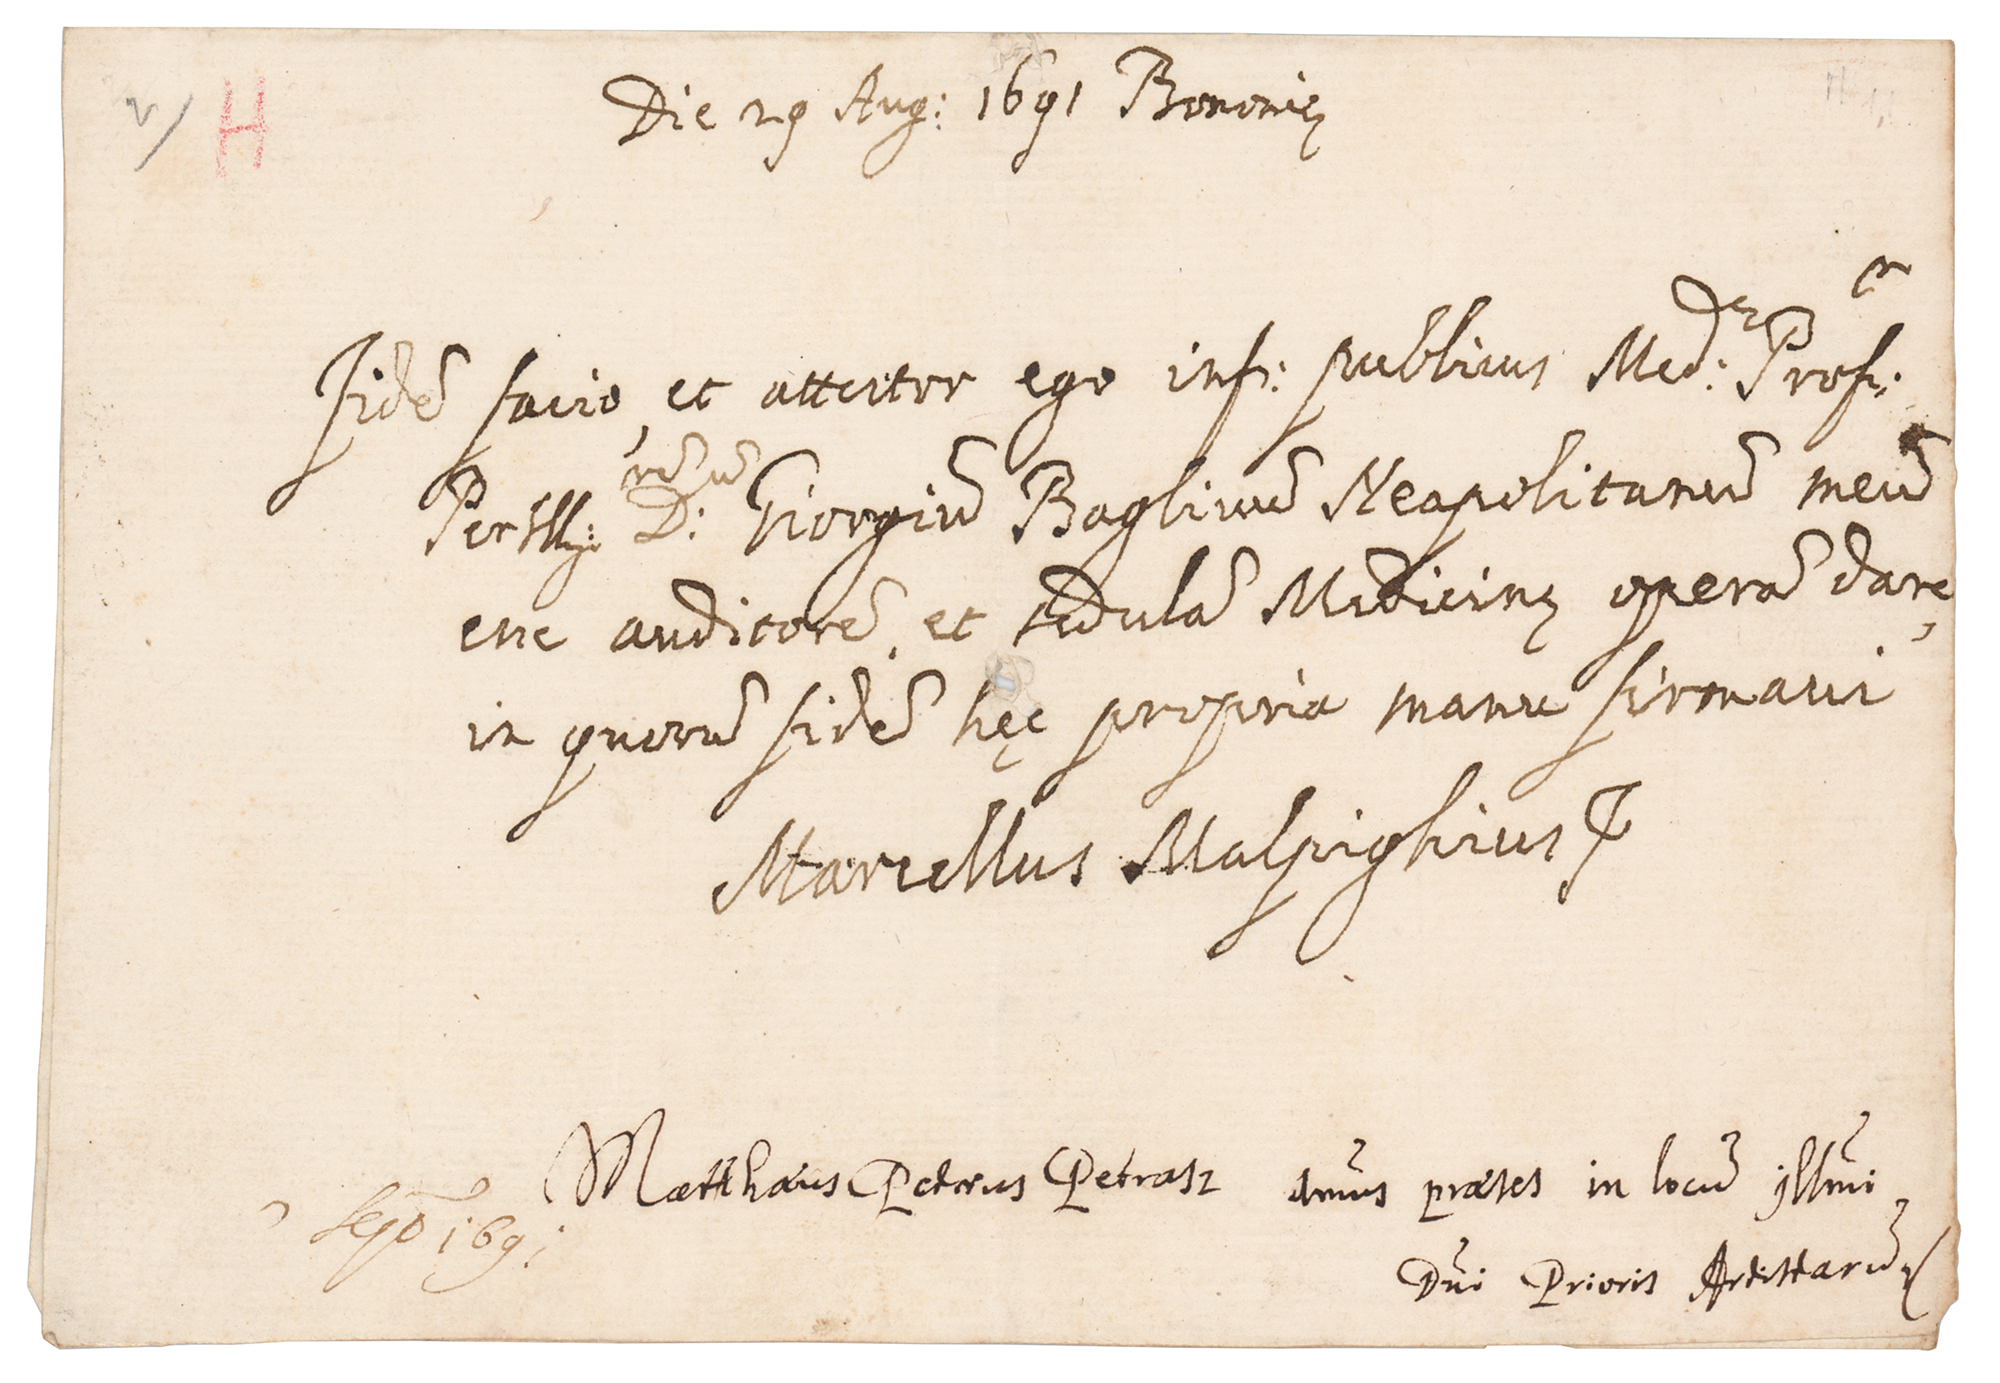 v/ H
Die 29 Aug: 1691 Bononię
fidē facio, et attestor ego inf: publicus Med: Prof:
Per Ill: D: Giorgiū Bagliuū Neapolitanū meū
esse auditorē, et sedulā Medicinę operā dare,
in quorū fidē hęc propria manu firmaui
Marcellus Malpighius
Matthæus Petrus Petrasz Annus præses in locū jllm̄i
Septō 1691
Dn̄i Prioris Artistarū